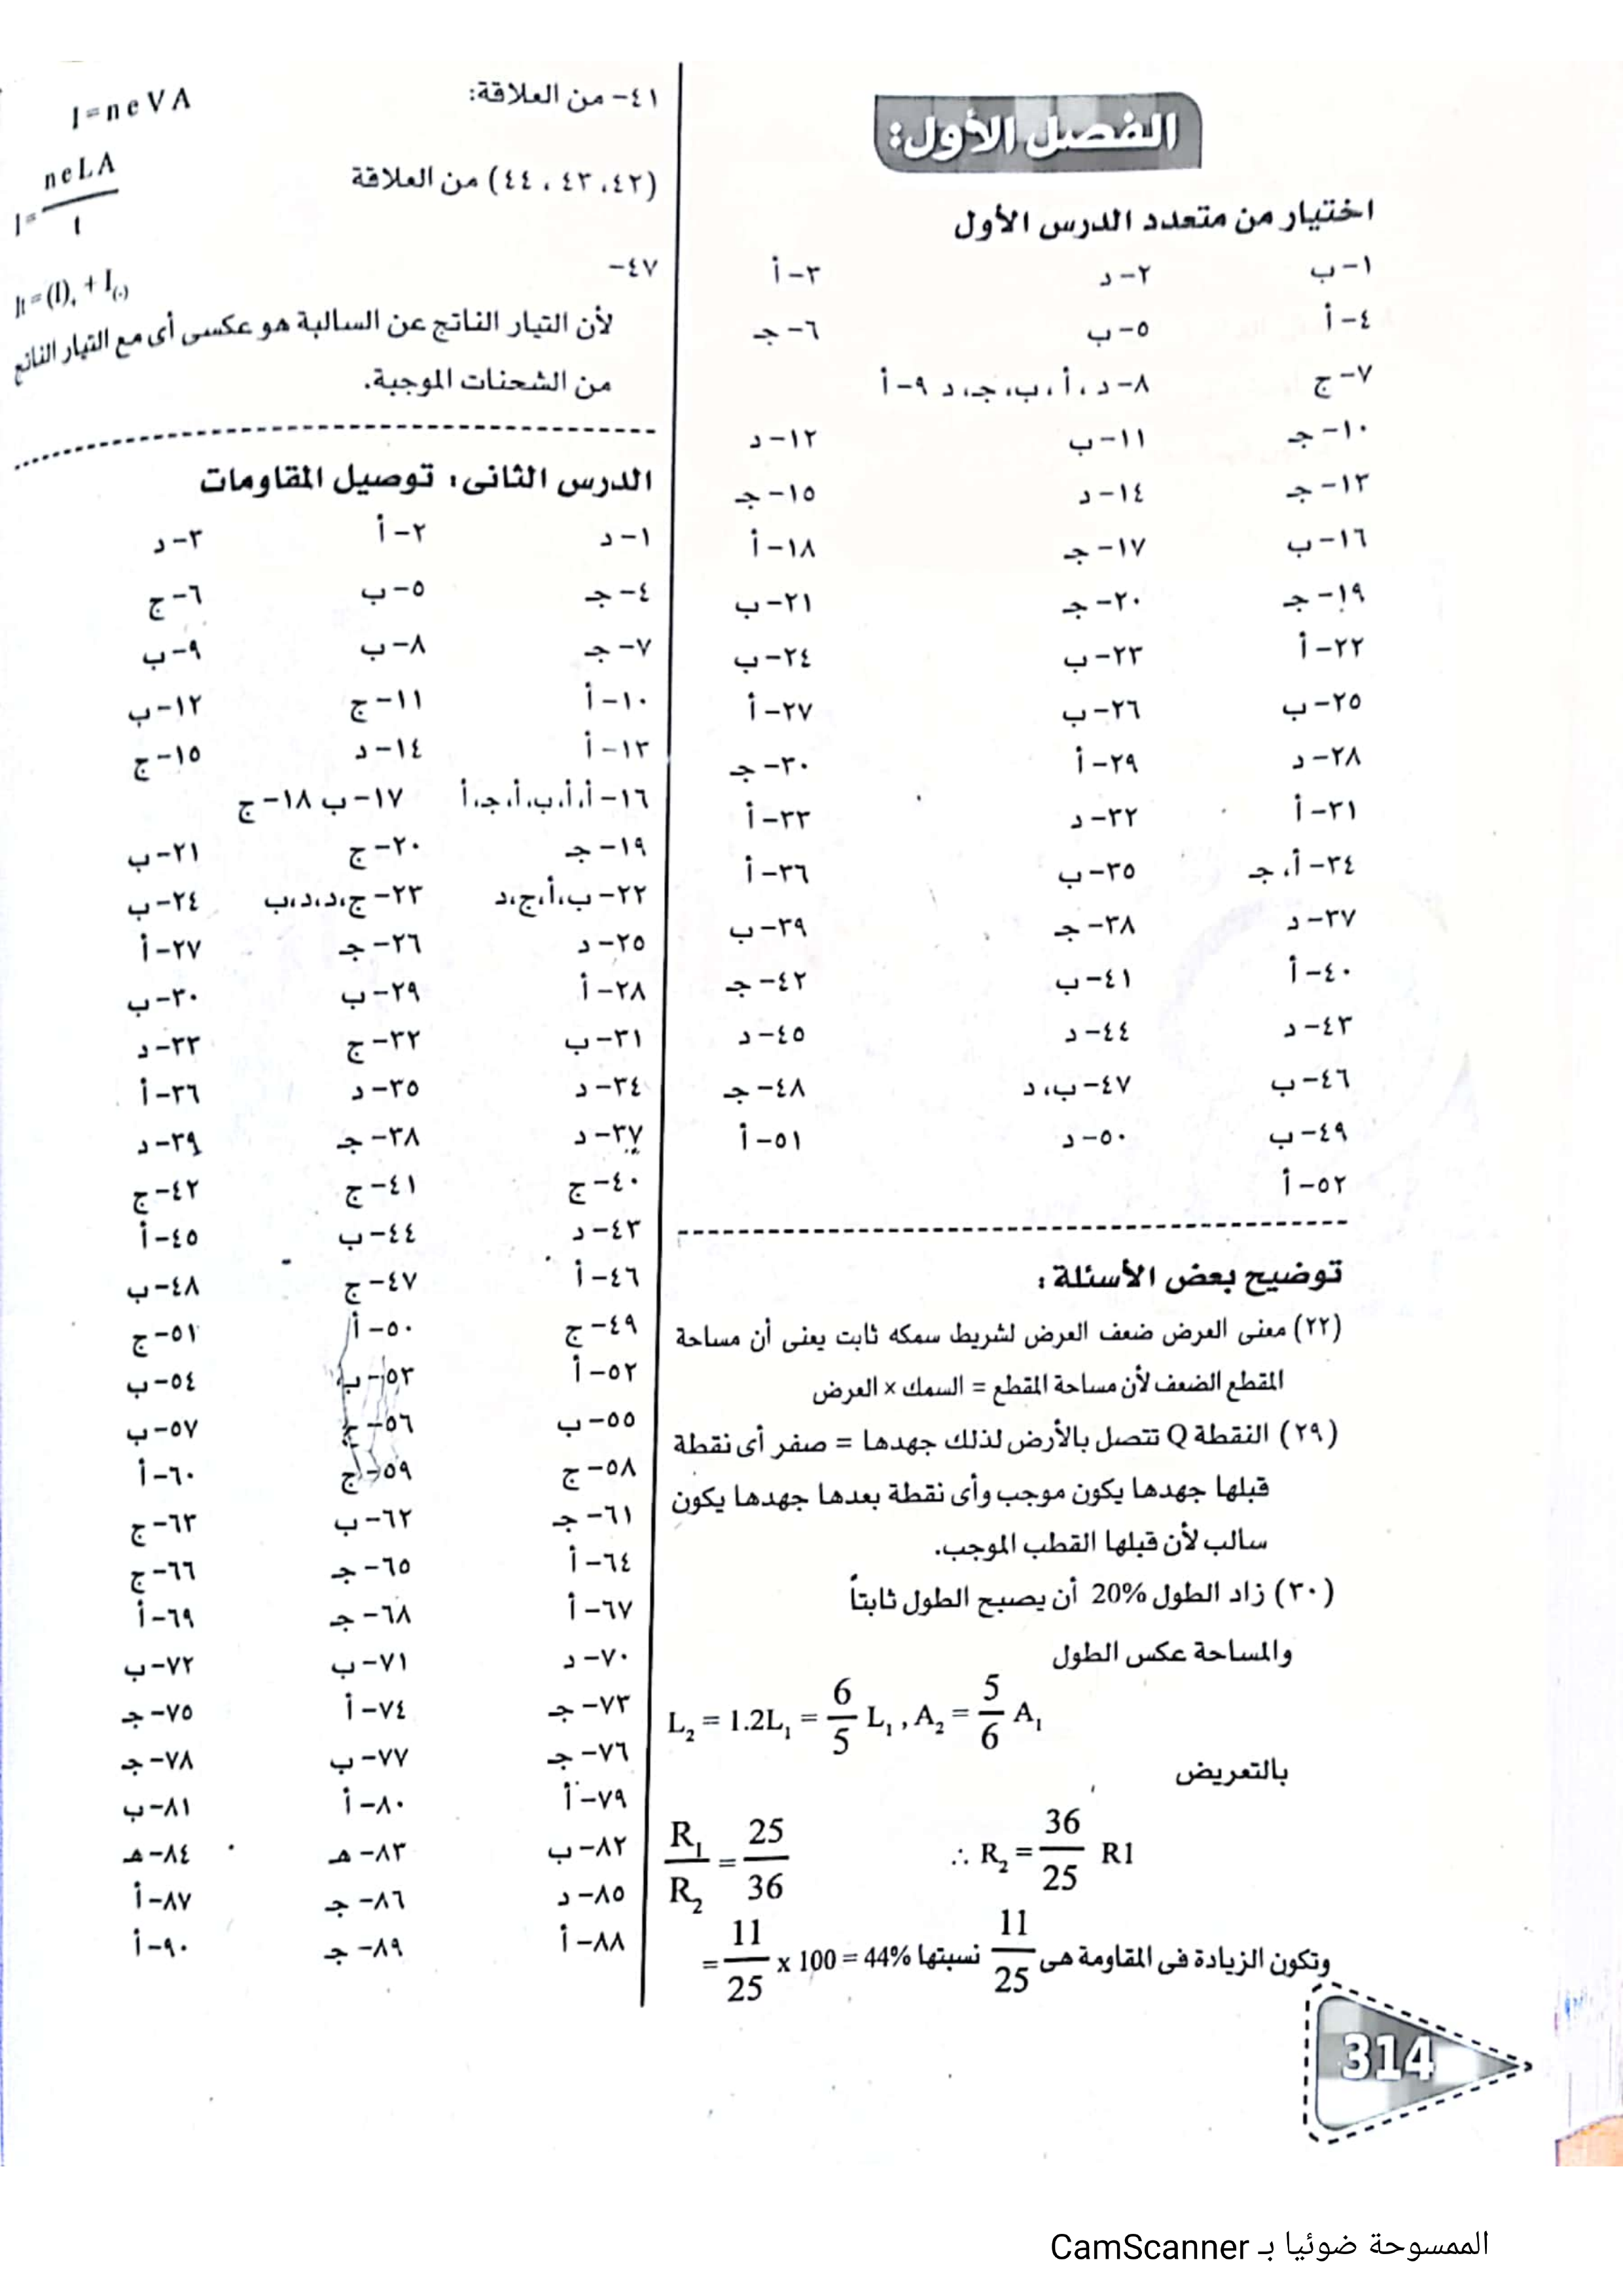 الفصل الأول:
اختيار من متعدد الدرس الأول
١- ب ٢- د ٣- أ
٤- أ ٥- ب ٦- جـ
٧- ج ٨- د ، أ ، ب، جـ، د ٩- أ
١٠- جـ ١١- ب ١٢- د
١٣- جـ ١٤- د ١٥- جـ
١٦- ب ١٧- جـ ١٨- أ
١٩- جـ ٢٠- جـ ٢١- ب
٢٢- أ ٢٣- ب ٢٤- ب
٢٥- ب ٢٦- ب ٢٧- أ
٢٨- د ٢٩- أ ٣٠- جـ
٣١- أ ٣٢- د ٣٣- أ
٣٤- أ، جـ ٣٥- ب ٣٦- أ
٣٧- د ٣٨- جـ ٣٩- ب
٤٠- أ ٤١- ب ٤٢- جـ
٤٣- د ٤٤- د ٤٥- د
٤٦- ب ٤٧- ب، د ٤٨- جـ
٤٩- ب ٥٠- د ٥١- أ
٥٢- أ
توضيح بعض الأسئلة :
(٢٢) معنى العرض ضعف العرض لشريط سمكه ثابت يعنى أن مساحة
المقطع الضعف لأن مساحة المقطع = السمك × العرض
(٢٩) النقطة Q تتصل بالأرض لذلك جهدها = صفر أى نقطة
قبلها جهدها يكون موجب وأى نقطة بعدها جهدها يكون
سالب لأن قبلها القطب الموجب.
(٣٠) زاد الطول 20% أن يصبح الطول ثابتاً
والمساحة عكس الطول
L₂ = 1.2L₁ = 6/5 L₁ , A₂ = 5/6 A₁
بالتعريض
R₁/R₂ = 25/36 ∴ R₂ = 36/25 R1
وتكون الزيادة فى المقاومة هى 11/25 نسبتها = 11/25 x 100 = 44%
314
٤١- من العلاقة: I = n e V A
(٤٢، ٤٣ ، ٤٤) من العلاقة I = neLA/t
٤٧- It = (I)₊ + I₍₋₎
لأن التيار الناتج عن السالبة هو عكسى أى مع التيار الناتج
من الشحنات الموجبة.
الدرس الثانى: توصيل المقاومات
١- د ٢- أ ٣- د
٤- جـ ٥- ب ٦- ج
٧- جـ ٨- ب ٩- ب
١٠- أ ١١- ج ١٢- ب
١٣- أ ١٤- د ١٥- ج
١٦- أ،أ،ب،أ،جـ،أ ١٧- ب ١٨- ج
١٩- جـ ٢٠- ج ٢١- ب
٢٢- ب،أ،ج،د ٢٣- ج،د،د،ب ٢٤- ب
٢٥- د ٢٦- جـ ٢٧- أ
٢٨- أ ٢٩- ب ٣٠- ب
٣١- ب ٣٢- ج ٣٣- د
٣٤- د ٣٥- د ٣٦- أ
٣٧- د ٣٨- جـ ٣٩- د
٤٠- ج ٤١- ج ٤٢- ج
٤٣- د ٤٤- ب ٤٥- أ
٤٦- أ ٤٧- ج ٤٨- ب
٤٩- ج ٥٠- أ ٥١- ج
٥٢- أ ٥٣- ب ٥٤- ب
٥٥- ب ٥٦- ج ٥٧- ب
٥٨- ج ٥٩- ج ٦٠- أ
٦١- جـ ٦٢- ب ٦٣- ج
٦٤- أ ٦٥- جـ ٦٦- ج
٦٧- أ ٦٨- جـ ٦٩- أ
٧٠- د ٧١- ب ٧٢- ب
٧٣- جـ ٧٤- أ ٧٥- جـ
٧٦- جـ ٧٧- ب ٧٨- جـ
٧٩- أ ٨٠- أ ٨١- ب
٨٢- ب ٨٣- هـ ٨٤- هـ
٨٥- د ٨٦- جـ ٨٧- أ
٨٨- أ ٨٩- جـ ٩٠- أ
الممسوحة ضوئيا بـ CamScanner